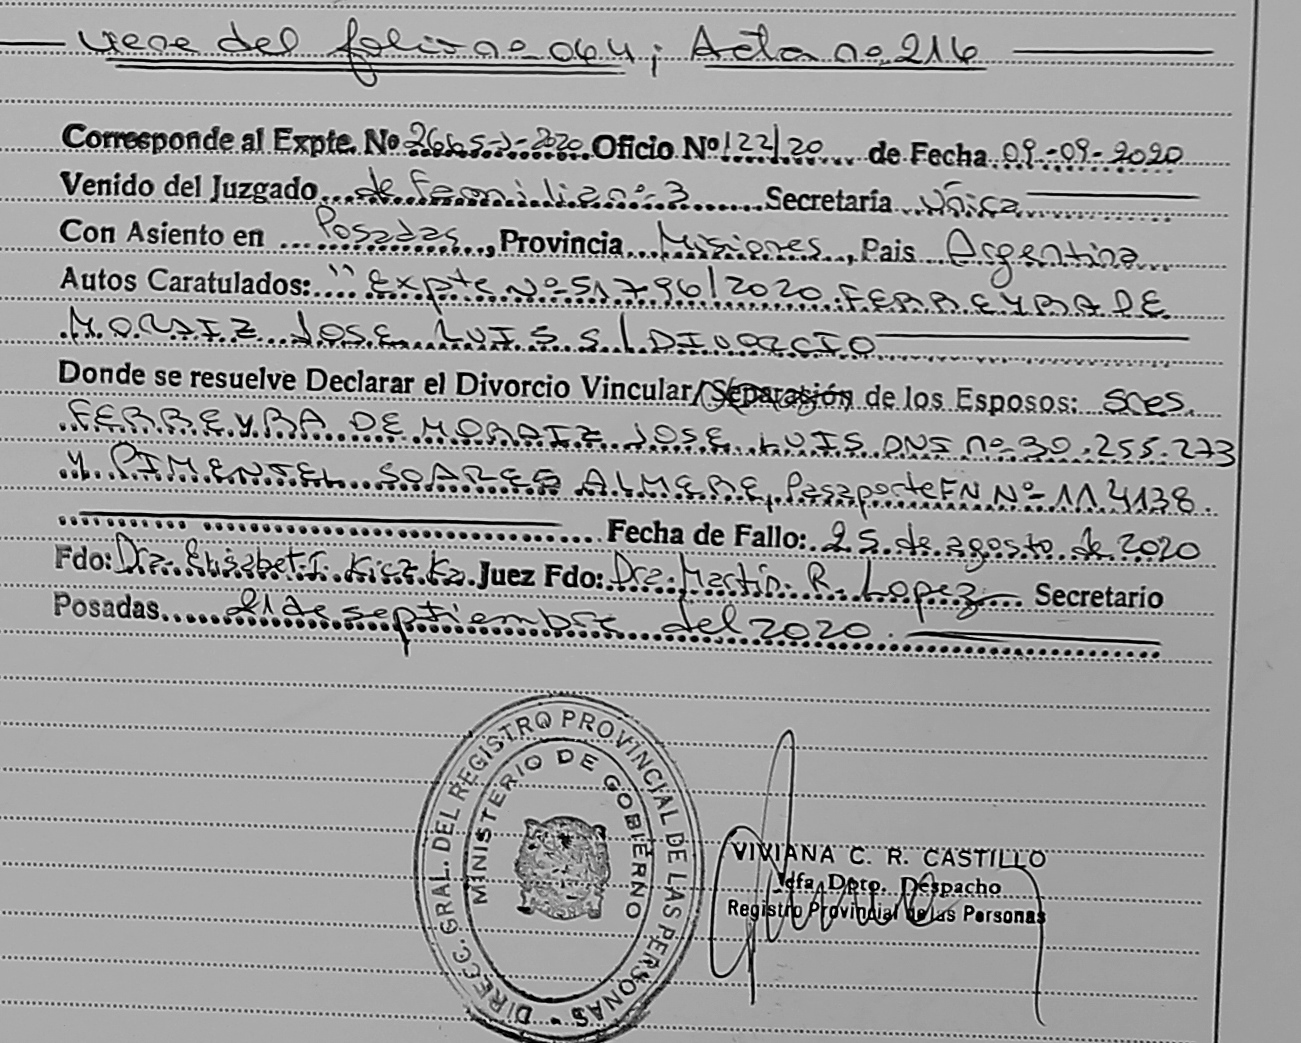 viene del folio nº 064; Acta nº 216
Corresponde al Expte. Nº 2665-J-2020 Oficio Nº 122/20 de Fecha 09-09-2020
Venido del Juzgado de familia nº 3 Secretaría Única
Con Asiento en Posadas, Provincia Misiones, Pais Argentina
Autos Caratulados: "Expte Nº 51796/2020 FERREYRA DE
MORAIZ JOSE LUIS S/DIVORCIO
Donde se resuelve Declarar el Divorcio Vincular/Separación de los Esposos: sres.
FERREYRA DE MORAIZ JOSE LUIS DNI nº 30.255.273
y PIMENTEL SOARES ALMERE, Pasaporte FN Nº 114138.
Fecha de Fallo: 25 de agosto de 2020
Fdo: Dra. Elisabet I. Kiczka Juez Fdo: Dr. Martín R. Lopez Secretario
Posadas 21 de septiembre del 2020.
DIRECC. GRAL. DEL REGISTRO PROVINCIAL DE LAS PERSONAS -
MINISTERIO DE GOBIERNO
VIVIANA C. R. CASTILLO
Jefa Dpto. Despacho
Registro Provincial de las Personas